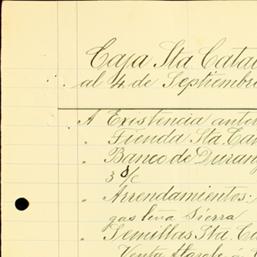 Caja Sta Cata
al 4 de Septiembre
A Existencia ante
" Tienda Sta. Ca
" Banco de Durang
3 s/c
" Arrendamientos:
gas leña Sierra
" Semillas Sta. Ca
Venta